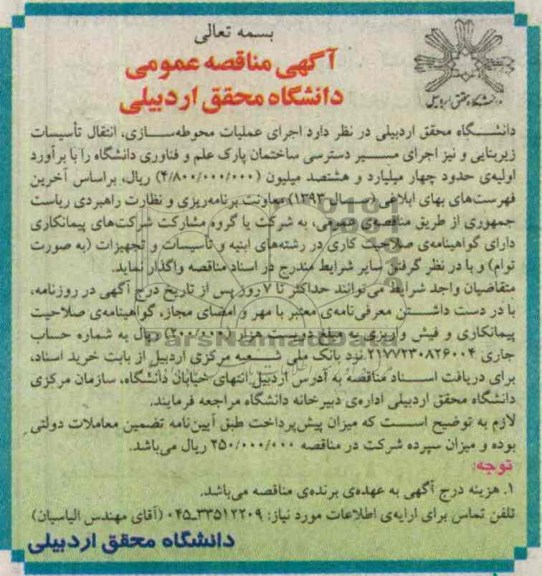 بسمه تعالی
دانشگاه محقق اردبیلی
آگهی مناقصه عمومی
دانشگاه محقق اردبیلی
دانشگاه محقق اردبیلی در نظر دارد اجرای عملیات محوطه‌سازی، انتقال تأسیسات
زیربنایی و نیز اجرای مسیر دسترسی ساختمان پارک علم و فناوری دانشگاه را با برآورد
اولیه‌ی حدود چهار میلیارد و هشتصد میلیون (۴/۸۰۰/۰۰۰/۰۰۰) ریال، براساس آخرین
فهرست‌های بهای ابلاغی (سال ۱۳۹۳) معاونت برنامه‌ریزی و نظارت راهبردی ریاست
جمهوری از طریق مناقصه‌ی عمومی، به شرکت یا گروه مشارکت شرکت‌های پیمانکاری
دارای گواهینامه‌ی صلاحیت کاری در رشته‌های ابنیه و تأسیسات و تجهیزات (به صورت
توام) و با در نظر گرفتن سایر شرایط مندرج در اسناد مناقصه واگذار نماید.
متقاضیان واجد شرایط می‌توانند حداکثر تا ۷ روز پس از تاریخ درج آگهی در روزنامه،
با در دست داشتن معرفی‌نامه‌ی معتبر با مهر و امضای مجاز، گواهینامه‌ی صلاحیت
پیمانکاری و فیش واریزی به مبلغ دویست هزار (۲۰۰/۰۰۰) ریال به شماره حساب
جاری ۲۱۷۷۲۳۰۸۲۶۰۰۴ نزد بانک ملی شعبه مرکزی اردبیل از بابت خرید اسناد،
برای دریافت اسناد مناقصه به آدرس اردبیل انتهای خیابان دانشگاه، سازمان مرکزی
دانشگاه محقق اردبیلی اداره‌ی دبیرخانه دانشگاه مراجعه فرمایند.
لازم به توضیح است که میزان پیش‌پرداخت طبق آیین‌نامه تضمین معاملات دولتی
بوده و میزان سپرده شرکت در مناقصه ۲۵۰/۰۰۰/۰۰۰ ریال می‌باشد.
توجه:
۱. هزینه درج آگهی به عهده‌ی برنده‌ی مناقصه می‌باشد.
تلفن تماس برای ارایه‌ی اطلاعات مورد نیاز: ۳۳۵۱۲۲۰۹-۰۴۵ (آقای مهندس الیاسیان)
دانشگاه محقق اردبیلی